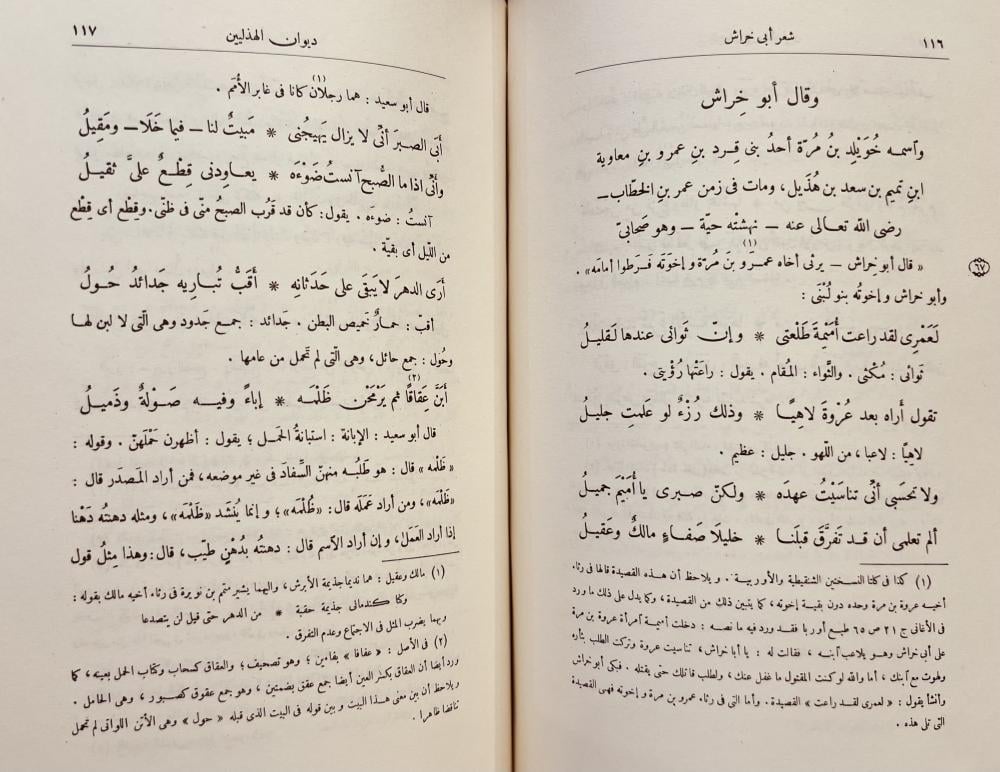 ١١٦
شعر أبى خراش
وقال أبو خِراش
وآسمه خُوَيْلِد بنُ مُرّة أحدُ بنى قِرد بنِ عمرو بنِ معاوية
ابنِ تميم بن سعد بن هُذَيل، ومات فى زمن عمر بنِ الخطّاب ــ
رضى الله تعالى عنه ــ نهشتْه حيّة ــ وهو صَحابىّ
« قال أبو خِراش ــ يرثى أخاه عمرَو بنَ مُرّة و إخوَتَه فَرطوا أمامَه » (١) .
٦٧
وأبو خراش و إخوتُه بنو لُبْنَى :
لَعَمْرِى لقد راعت أُمَيْمَةَ طَلْعَتِى * و إنّ ثَوائى عندها لَقليلُ
ثَوائى : مُكْثى . والثَّواء : المُقام . يقول : راعَتْها رُؤْيتى .
تقول أراه بعد عُرْوةَ لاهِيًا * وذلك رُزْءٌ لو علمتِ جليلُ
لاهيًا : لاعبا، من اللّهو . جليل : عظيم .
ولا تحسَبى أنّى تناسَيْتُ عهدَه * ولكنّ صبرى يا أُمَيْمَ جميلُ
ألم تعلمى أن قد تَفرَّقَ قبلَنا * خليلَا صَفاءٍ مالكٌ وعَقيلُ
(١) كذا فى كلتا النسختين الشنقيطية والأوربية . و يلاحظ أن هذه القصيدة قالها فى رثاء
أخيه عروة بن مرة وحده دون بقية إخوته، كما يتبين ذلك من القصيدة، وكما يدل على ذلك ما ورد
فى الأغانى ج ٢١ ص ٦٥ طبع أوربا فقد ورد فيه ما نصه : دخلت أميمة آمرأة عروة بن مرة
على أبى خراش وهو يلاعب آبنه ، فقالت له : يا أبا خراش، تناسيت عروة وتركت الطلب بثأره
ولهوت مع آبنك، أما والله لو كنت المقتول ما غفل عنك، ولطلب قاتلك حتى يقتله . فبكى أبو خراش
وأنشأ يقول : « لعمرى لقد راعت » القصيدة . وأما التى فى رثاء عمرو بن مرة و إخوته فهى القصيدة
التى تلى هذه .
ديوان الهذليين
١١٧
قال أبو سعيد : هما رجلان (١) كانا فى غابر الأُمَم .
أَبَى الصبرَ أنّى لا يزال يَهيجُنى * مَبيتٌ لنا ــ فيما خَلَا ــ ومَقيلُ
وأنّى اذا ما الصُّبحَ آنستُ ضَوْءَه * يعاودنى قِطْعٌ علىَّ ثقيلُ
آنستُ : ضوءَه . يقول : كأن قد قَرُب الصبحُ منّى فى ظنّى . وقِطْع أى قِطْع
من اللّيل أى بقيّة .
أرَى الدهرَ لا يَبقَى على حَدَثانِه * أَقَبُّ تُبارِيه جَدائدُ حُولُ
أقبّ : حمارٌ خَميص البطن . جَدائد : جمع جَدود وهى الّتى لا لبن لها
وحُول : جمع حائل، وهى الّتى لم تَحمل من عامها .
أَبَنَّ عِقاقًا (٢) ثم يَرْمَحْن ظَلْمَه * إباءً وفيه صَوْلةٌ وذَميلُ
قال أبو سعيد : الإبانة : استبانةُ الحَمل ؛ يقول : أظهرن حَمْلَهنّ . وقوله :
« ظَلْمه » قال : هو طَلَبُه منهنّ السِّفادَ فى غير موضعه، فمن أراد المَصدَر قال :
« ظَلْمَه »، ومن أراد عَمَلَه قال : « ظُلْمَه »؛ و إنما يُنشَد « ظَلْمَه »، ومثله دهنتُه دَهْنا
إذا أراد العَمَلَ، و إن أراد الآسم قال : دهنتُه بدُهْنٍ طيّب، قال : وهذا مِثلُ قول
(١) مالك وعقيل : هما نديما جذيمة الأبرش، و اليهما يشير متمّ بن نويرة فى رثاء أخيه مالك بقوله :
وكنا كندمانى جذيمة حقبة * من الدهر حتى قيل لن يتصدعا
وبهما يضرب المثل فى الاجتماع وعدم التفرق .
(٢) فى الأصل : « عفافا » بفاءين ؛ وهو تصحيف ؛ والعقاق كسحاب وكتاب الحمل بعينه، كما
ورد أيضا أن العقاق بكسر العين أيضا جمع عقق بضمتين ، وهو جمع عقوق كصبور، وهى الحامل .
و يلاحظ أن بين معنى هذا البيت و بين قوله فى البيت الذى قبله « حول » وهى الأتن اللواتى لم تحمل
تناقضا ظاهرا .